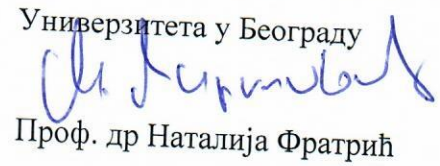 Универзитета у Београду
Проф. др Наталија Фратрић